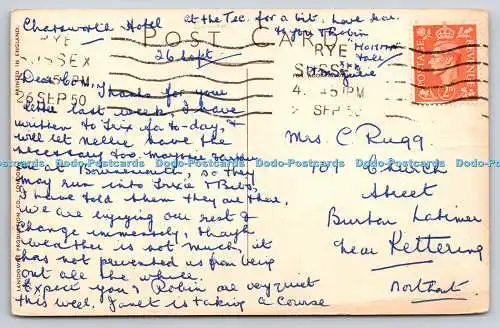 Chatsworth Hotel
at the Tec. for a bit, love from
Hilda
POST CARD
26 Sept
PRINTED IN ENGLAND.
RYE
SUSSEX
PM
26 SEP 50
RYE
SUSSEX
4. 45 PM
SEP 50
POSTAGE
Dear Con, Thanks for your
letter last week, I have
written to Trix to-day, &
will let Nellie have the
necessary too.
are at Bournemouth, so they
may run into Trixie & Bubs,
I have told them they are there,
we are enjoying our rest &
change immensely, though
weather is not much, it
has not prevented us from being
out all the while.
Expect you & Robin are very quiet
this week. Janet is taking a course
Mrs C. Rugg.
401 Church
Street
Burton Latimer
Near Kettering
Northant
LANSDOWNE PRODUCTION CO., LONDON.
www.Todo-Postcards.com Todo-Postcards Todo-Postcards Todo-Postcards